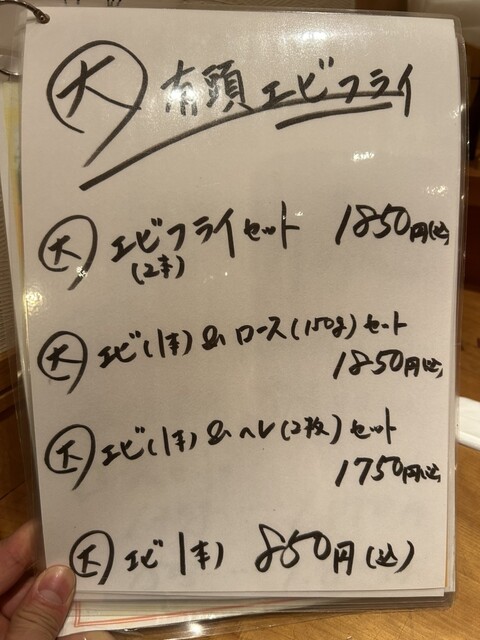 大 有頭エビフライ
大 エビフライセット 1850円(込)
(2本)
大 エビ(1本)&ロース(150g)セット
1850円(込)
大 エビ(1本)&ヘレ(2枚)セット
1750円(込)
大 エビ1本 850円(込)